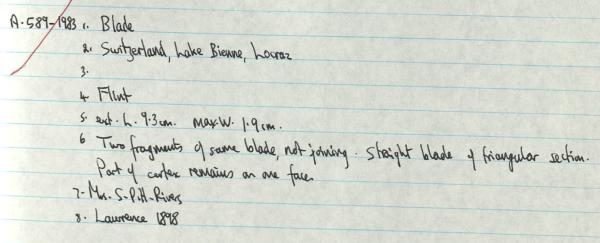 A.589-1983 1. Blade
2. Switzerland, Lake Bienne, Locraz
3.
4 Flint
5. ext. L. 9.3cm. max.W. 1.9cm.
6 Two fragments of same blade, not joining. Straight blade of triangular section.
Part of cortex remains on one face.
7. Mrs. S. Pitt-Rivers
8. Lawrence 1898